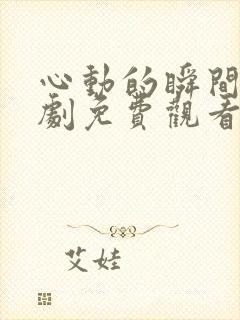 心動的瞬間
劇免費觀看
艾娃